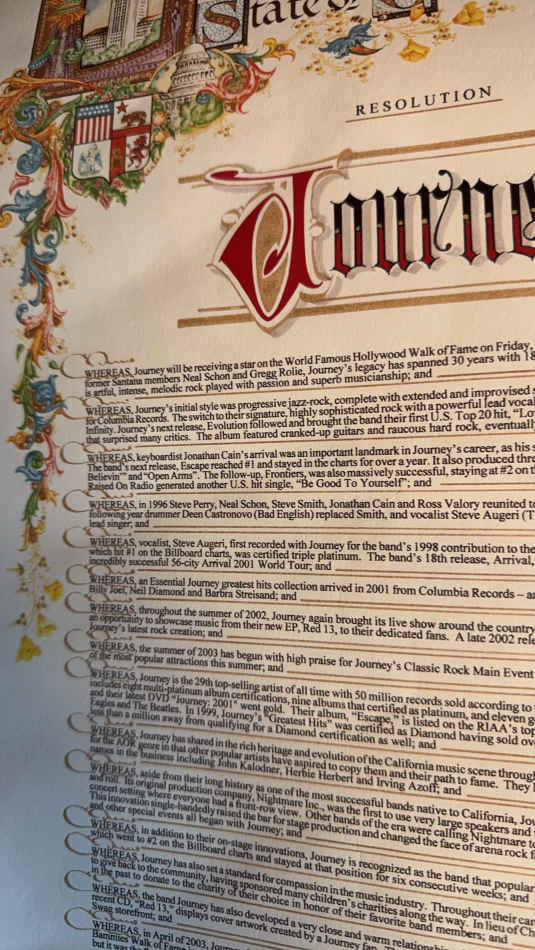 State of
RESOLUTION
Journe
WHEREAS, Journey will be receiving a star on the World Famous Hollywood Walk of Fame on Friday,
former Santana members Neal Schon and Gregg Rolie, Journey's legacy has spanned 30 years with 18
is artful, intense, melodic rock played with passion and superb musicianship; and
WHEREAS, Journey's initial style was progressive jazz-rock, complete with extended and improvised s
for Columbia Records. The switch to their signature, highly sophisticated rock with a powerful lead vocal
Infinity. Journey's next release, Evolution followed and brought the band their first U.S. Top 20 hit, "Lo
that surprised many critics. The album featured cranked-up guitars and raucous hard rock, eventuall
WHEREAS, keyboardist Jonathan Cain's arrival was an important landmark in Journey's career, as his s
The band's next release, Escape reached #1 and stayed in the charts for over a year. It also produced thr
Believin'" and "Open Arms". The follow-up, Frontiers, was also massively successful, staying at #2 on t
Raised On Radio generated another U.S. hit single, "Be Good To Yourself"; and
WHEREAS, in 1996 Steve Perry, Neal Schon, Steve Smith, Jonathan Cain and Ross Valory reunited to
following year drummer Deen Castronovo (Bad English) replaced Smith, and vocalist Steve Augeri (T
lead singer; and
WHEREAS, vocalist, Steve Augeri, first recorded with Journey for the band's 1998 contribution to the
which hit #1 on the Billboard charts, was certified triple platinum. The band's 18th release, Arrival,
incredibly successful 56-city Arrival 2001 World Tour; and
WHEREAS, an Essential Journey greatest hits collection arrived in 2001 from Columbia Records – a
Billy Joel, Neil Diamond and Barbra Streisand; and
WHEREAS, throughout the summer of 2002, Journey again brought its live show around the country
an opportunity to showcase music from their new EP, Red 13, to their dedicated fans. A late 2002 rele
Journey's latest rock creation; and
WHEREAS, the summer of 2003 has begun with high praise for Journey's Classic Rock Main Event
of the most popular attractions this summer; and
WHEREAS, Journey is the 29th top-selling artist of all time with 50 million records sold according to
includes eight multi-platinum album certifications, nine albums that certified as platinum, and eleven g
and their latest DVD "Journey: 2001" went gold. Their album, "Escape," is listed on the RIAA's top
Eagles and The Beatles. In 1999, Journey's "Greatest Hits" was certified as Diamond having sold ov
less than a million away from qualifying for a Diamond certification as well; and
WHEREAS, Journey has shared in the rich heritage and evolution of the California music scene through
for the AOR genre in that other popular artists have aspired to copy them and their path to fame. They
names in the business including John Kalodner, Herbie Herbert and Irving Azoff; and
WHEREAS, aside from their long history as one of the most successful bands native to California, Jou
and roll. Its original production company, Nightmare Inc., was the first to use very large speakers and
concert setting where everyone had a front-row view. Other bands of the era were calling Nightmare to
This innovation single-handedly raised the bar for stage production and changed the face of arena rock f
and other special events all began with Journey; and
WHEREAS, in addition to their on-stage innovations, Journey is recognized as the band that popular
which went to #2 on the Billboard charts and stayed at that position for six consecutive weeks; and
WHEREAS, Journey has also set a standard for compassion in the music industry. Throughout their car
to give back to the community, having sponsored many children's charities along the way. In lieu of Ch
in the past to donate to the charity of their choice in honor of their favorite band members; and
WHEREAS, the band Journey has also developed a very close and warm relationshi
recent CD, "Red 13," displays cover artwork created by a Journey fan
Swag storefront; and
WHEREAS, in April of 2003, Journey
Bammies Walk of Fame
but it was the